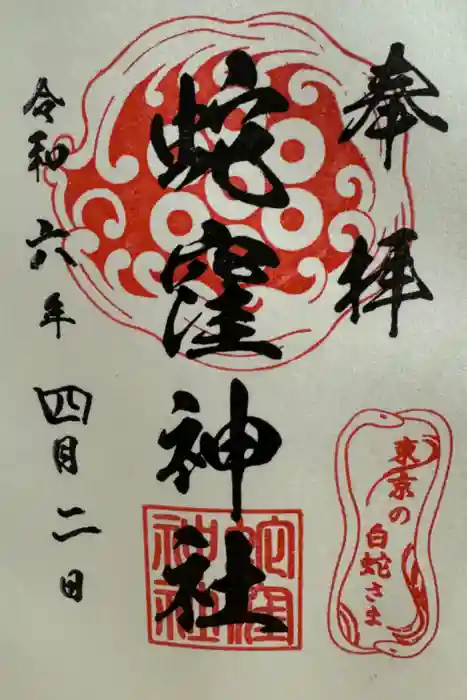 奉拝
蛇窪神社
令和六年四月二日
東京の
白蛇さま
蛇窪
神社